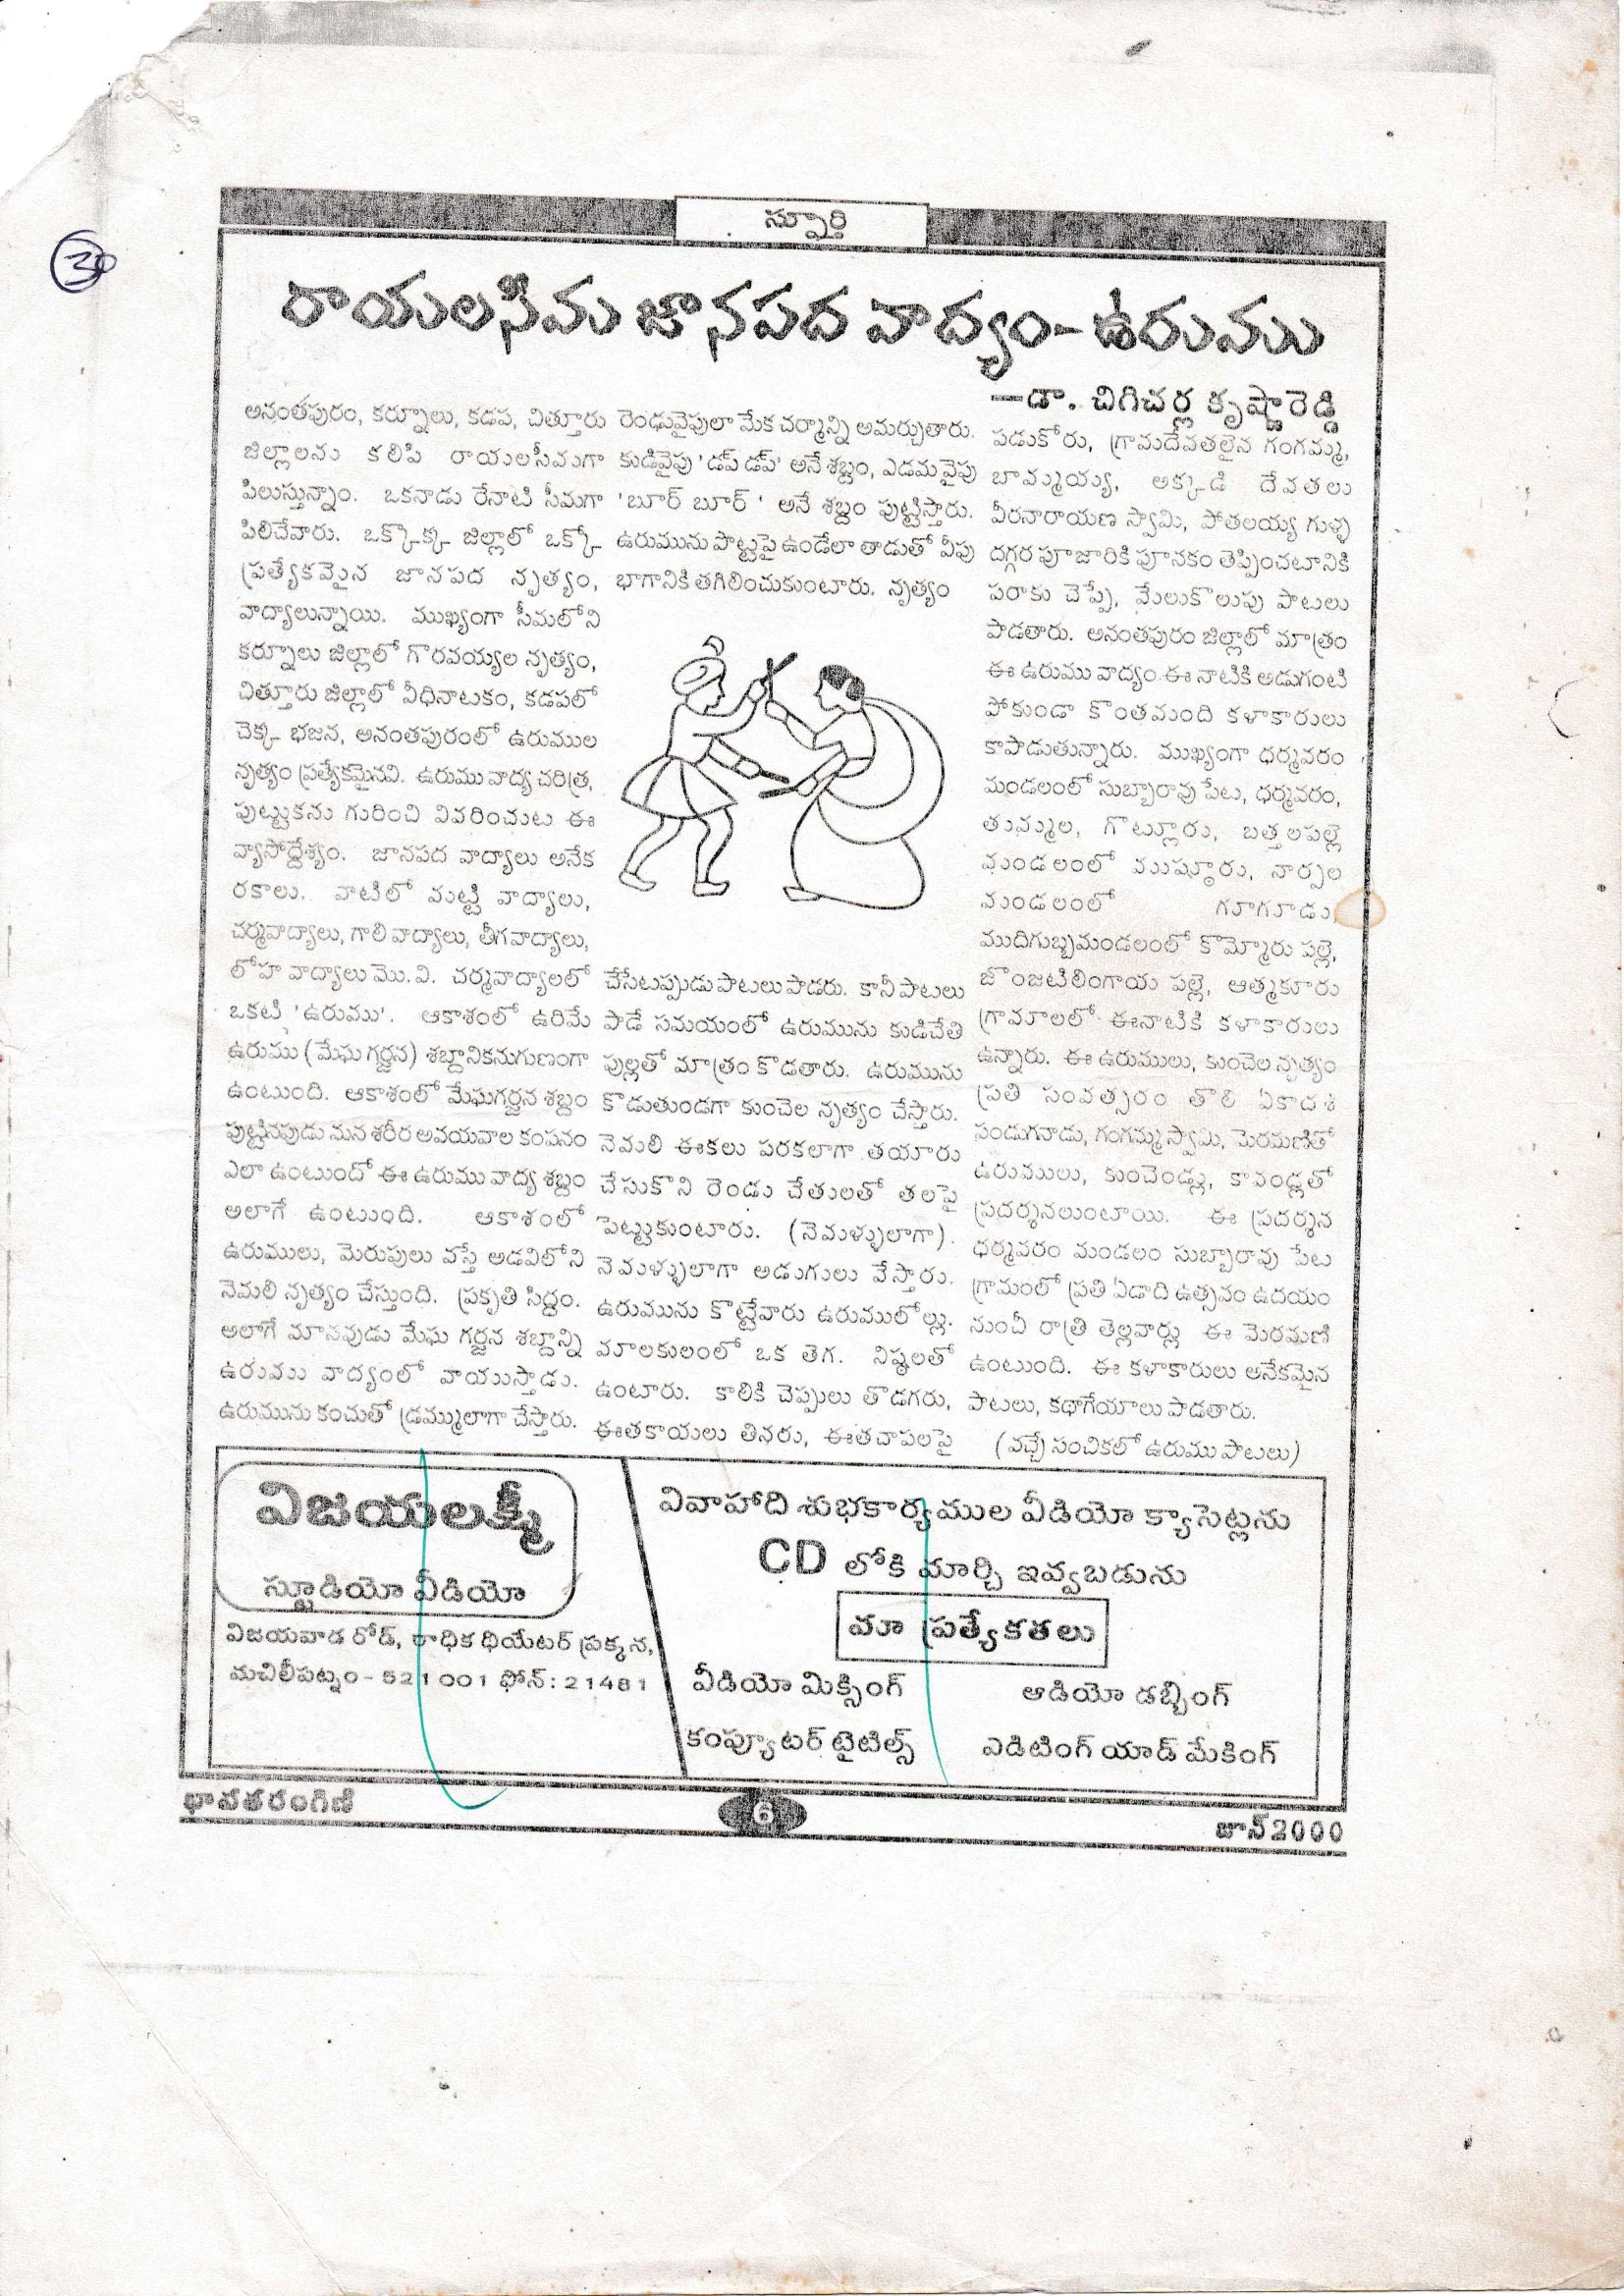 30
స్ఫూర్తి
రాయలసీమ జానపద వాద్యం-ఉరుము
-డా. చిగిచర్ల కృష్ణారెడ్డి
అనంతపురం, కర్నూలు, కడప, చిత్తూరు
జిల్లాలను కలిపి రాయలసీమగా
పిలుస్తున్నాం. ఒకనాడు రేనాటి సీమగా
పిలిచేవారు. ఒక్కొక్క జిల్లాలో ఒక్కో
ప్రత్యేకమైన జానపద నృత్యం,
వాద్యాలున్నాయి. ముఖ్యంగా సీమలోని
కర్నూలు జిల్లాలో గొరవయ్యల నృత్యం,
చిత్తూరు జిల్లాలో వీధినాటకం, కడపలో
చెక్క భజన, అనంతపురంలో ఉరుముల
నృత్యం ప్రత్యేకమైనవి. ఉరుము వాద్య చరిత్ర,
పుట్టుకను గురించి వివరించుట ఈ
వ్యాసోద్దేశ్యం. జానపద వాద్యాలు అనేక
రకాలు. వాటిలో మట్టి వాద్యాలు,
చర్మవాద్యాలు, గాలి వాద్యాలు, తీగవాద్యాలు,
లోహ వాద్యాలు మొ.వి. చర్మవాద్యాలలో
ఒకటి 'ఉరుము'. ఆకాశంలో ఉరిమే
ఉరుము (మేఘ గర్జన) శబ్దానికనుగుణంగా
ఉంటుంది. ఆకాశంలో మేఘగర్జన శబ్దం
పుట్టినపుడు మన శరీర అవయవాల కంపనం
ఎలా ఉంటుందో ఈ ఉరుము వాద్య శబ్దం
అలాగే ఉంటుంది. ఆకాశంలో
ఉరుములు, మెరుపులు వస్తే అడవిలోని
నెమలి నృత్యం చేస్తుంది. ప్రకృతి సిద్ధం.
అలాగే మానవుడు మేఘ గర్జన శబ్దాన్ని
ఉరుము వాద్యంలో వాయిస్తాడు.
ఉరుమును కంచుతో డ్రమ్ములాగా చేస్తారు.
రెండువైపులా మేక చర్మాన్ని అమర్చుతారు.
కుడివైపు 'డప్ డప్' అనే శబ్దం, ఎడమవైపు
'బూర్ బూర్ ' అనే శబ్దం పుట్టిస్తారు.
ఉరుమును పొట్టపై ఉండేలా తాడుతో వీపు
భాగానికి తగిలించుకుంటారు. నృత్యం
చేసేటప్పుడు పాటలు పాడరు. కానీ పాటలు
పాడే సమయంలో ఉరుమును కుడిచేతి
పుల్లతో మాత్రం కొడతారు. ఉరుమును
కొడుతుండగా కుంచెల నృత్యం చేస్తారు.
నెమలి ఈకలు పరకలాగా తయారు
చేసుకొని రెండు చేతులతో తలపై
పెట్టుకుంటారు. (నెమళ్ళులాగా).
నెమళ్ళులాగా అడుగులు వేస్తారు.
ఉరుమును కొట్టేవారు ఉరుములోల్లు.
మాలకులంలో ఒక తెగ. నిష్ఠలతో
ఉంటారు. కాలికి చెప్పులు తొడగరు,
ఈతకాయలు తినరు, ఈతచాపలపై
పడుకోరు, గ్రామదేవతలైన గంగమ్మ,
బామ్మయ్య, అక్కడి దేవతలు
వీరనారాయణ స్వామి, పోతలయ్య గుళ్ళ
దగ్గర పూజారికి పూనకం తెప్పించటానికి
పరాకు చెప్పే, మేలుకొలుపు పాటలు
పాడతారు. అనంతపురం జిల్లాలో మాత్రం
ఈ ఉరుము వాద్యం ఈ నాటికి అడుగంటి
పోకుండా కొంతమంది కళాకారులు
కాపాడుతున్నారు. ముఖ్యంగా ధర్మవరం
మండలంలో సుబ్బారావు పేట, ధర్మవరం,
తుమ్మల, గొట్లూరు, బత్తలపల్లె
మండలంలో ముష్టూరు, నార్పల
మండలంలో గూగూడు,
ముదిగుబ్బమండలంలో కొమ్మోరు పల్లె,
జొంజటిలింగాయ పల్లె, ఆత్మకూరు
గ్రామాలలో ఈనాటికి కళాకారులు
ఉన్నారు. ఈ ఉరుములు, కుంచెల నృత్యం
ప్రతి సంవత్సరం తొలి ఏకాదశి
పండుగనాడు, గంగమ్మ స్వామి, మెరమణితో
ఉరుములు, కుంచెండ్లు, కావండ్లతో
ప్రదర్శనలుంటాయి. ఈ ప్రదర్శన
ధర్మవరం మండలం సుబ్బారావు పేట
గ్రామంలో ప్రతి ఏడాది ఉత్సవం ఉదయం
నుంచీ రాత్రి తెల్లవార్లు ఈ మెరమణి
ఉంటుంది. ఈ కళాకారులు అనేకమైన
పాటలు, కథాగేయాలు పాడతారు.
(వచ్చే సంచికలో ఉరుము పాటలు)
విజయలక్ష్మీ
స్టూడియో వీడియో
విజయవాడ రోడ్, రాధిక థియేటర్ ప్రక్కన,
మచిలీపట్నం - 521 001 ఫోన్ : 21481
వివాహాది శుభకార్యముల వీడియో క్యాసెట్లను
CD లోకి మార్చి ఇవ్వబడును
మా ప్రత్యేకతలు
వీడియో మిక్సింగ్ ఆడియో డబ్బింగ్
కంప్యూటర్ టైటిల్స్ ఎడిటింగ్ యాడ్ మేకింగ్
భావతరంగిణి 6 జూన్ 2000